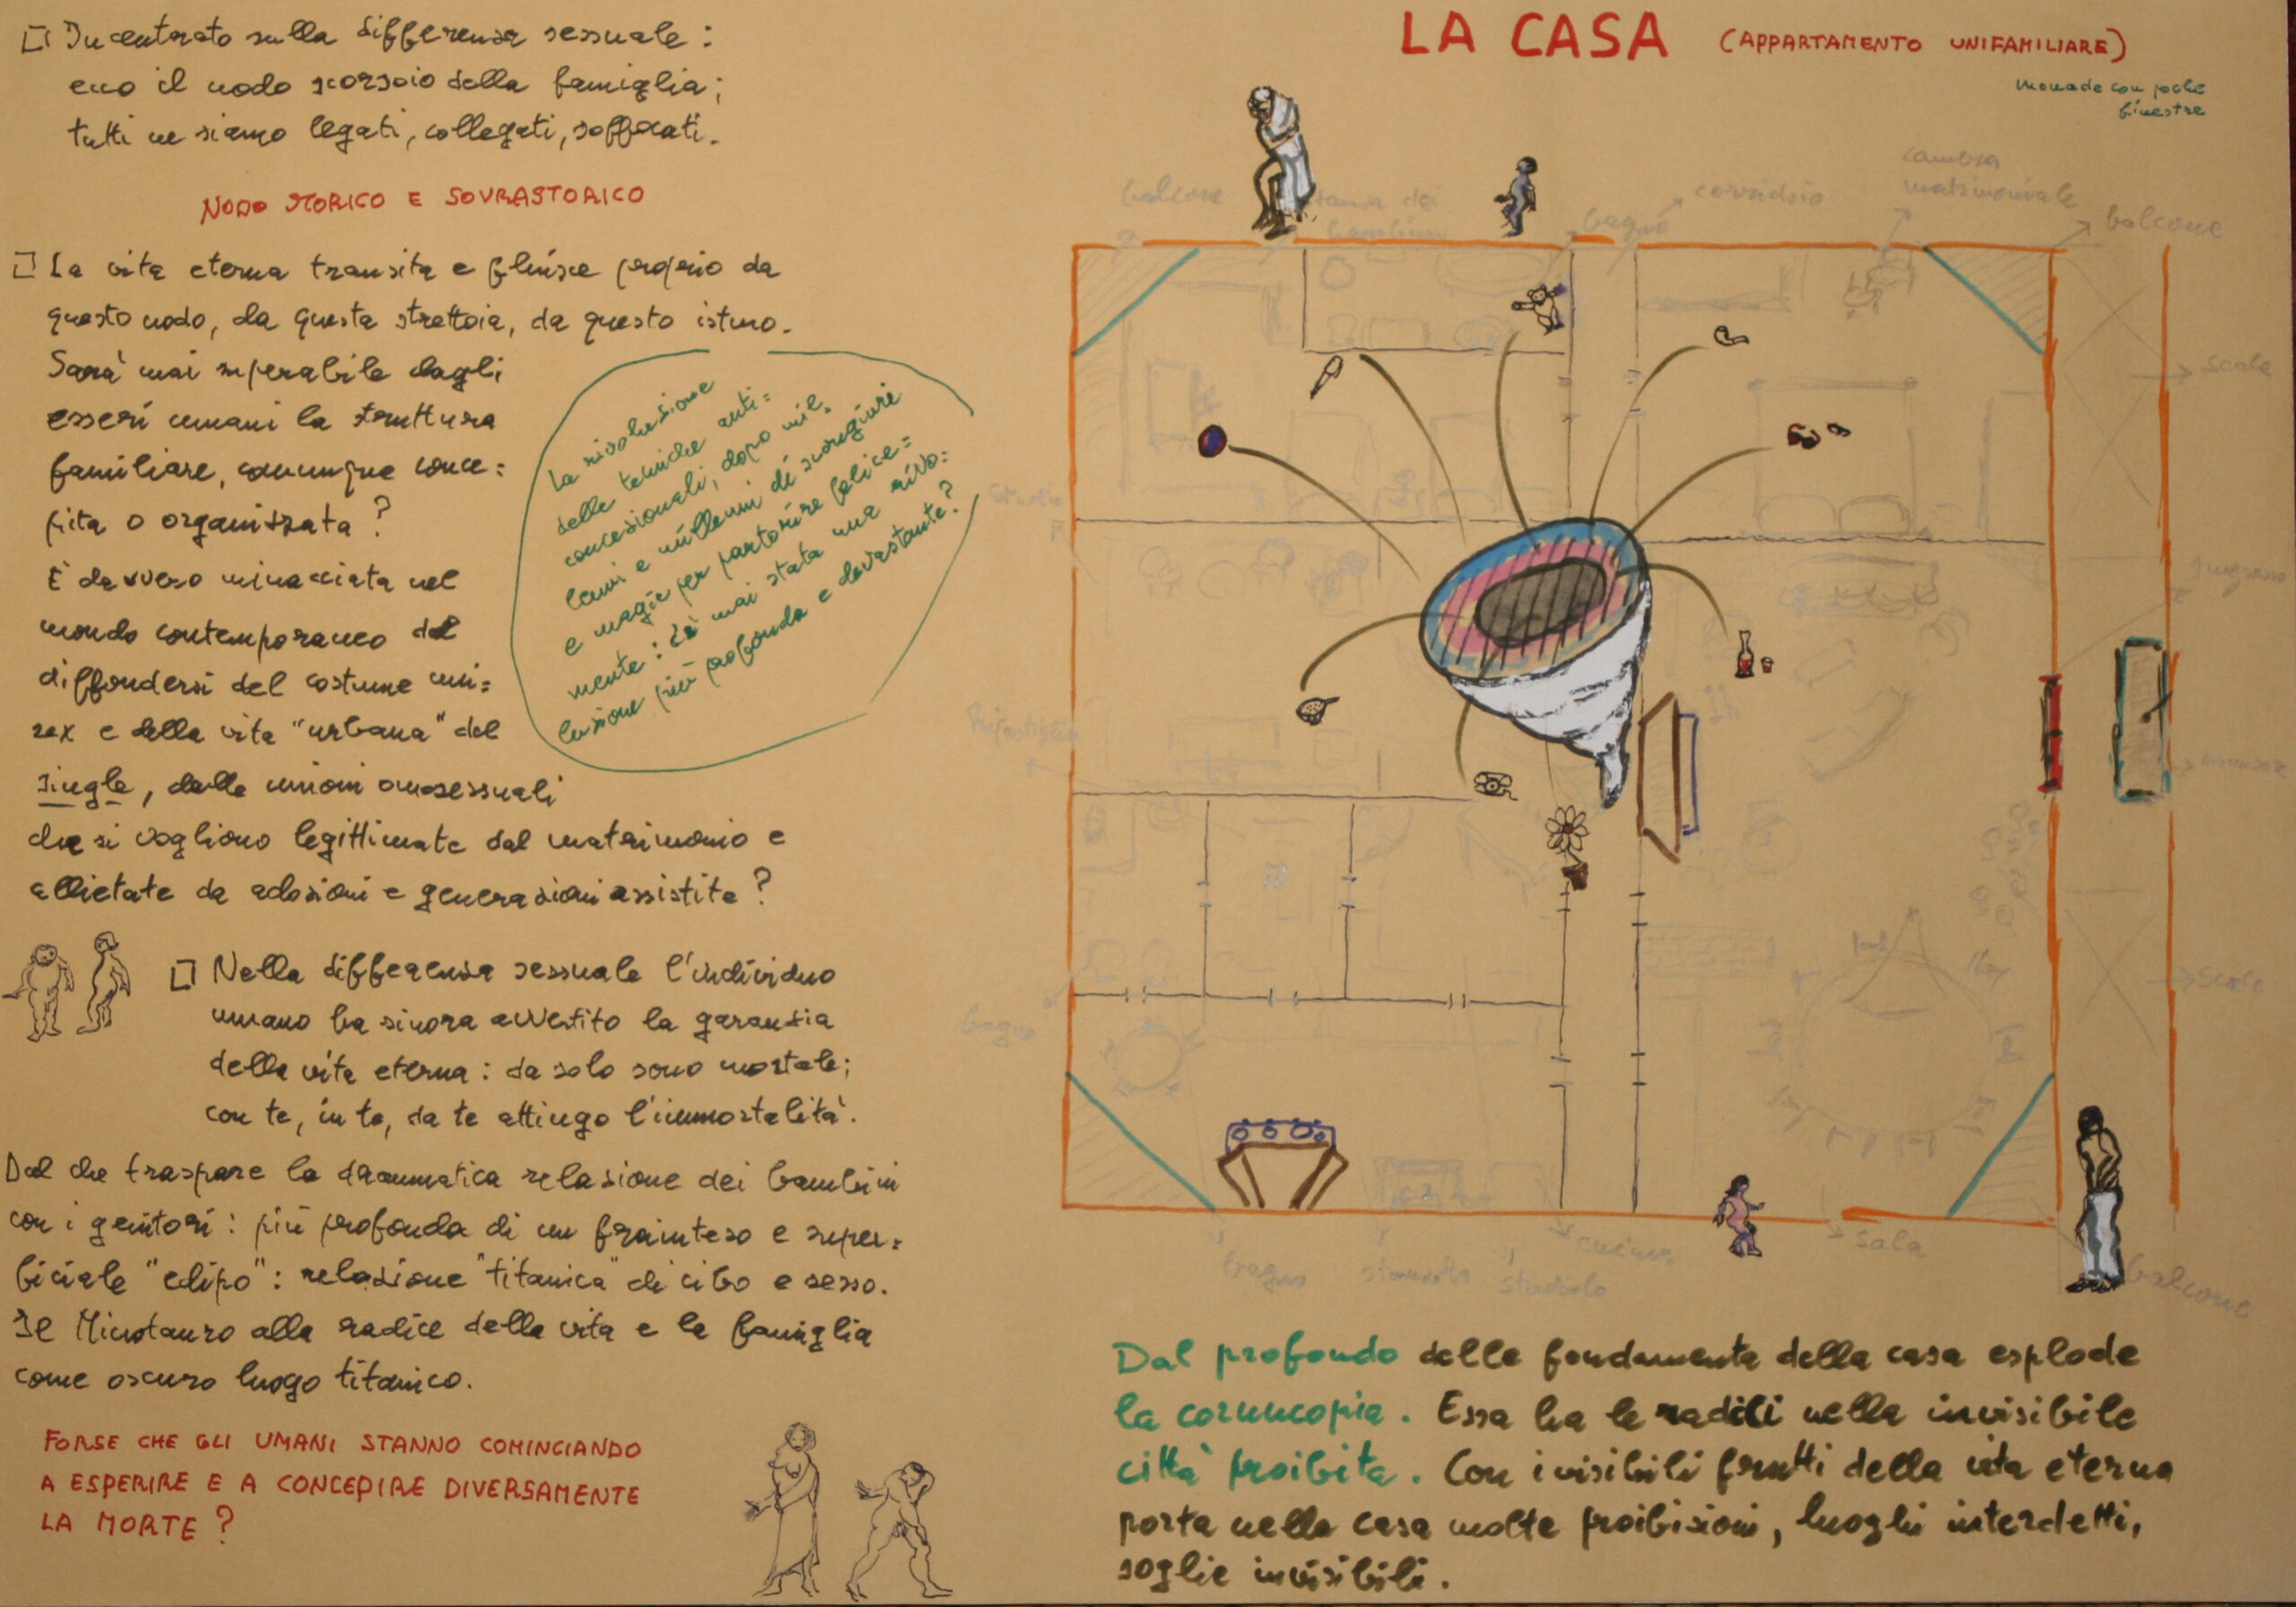 Incentrato sulla differenza sessuale :
ecco il nodo scorsoio della famiglia ;
tutti ne siamo legati, collegati, soffocati.
NODO STORICO E SOVRASTORICO
La vita eterna transita e fluisce proprio da
questo nodo, da questa strettoia, da questo istmo.
Sarà mai superabile dagli
esseri umani la struttura
familiare, comunque conce=
pita o organizzata ?
È davvero minacciata nel
mondo contemporaneo dal
diffondersi del costume uni=
sex e della vita "urbana" del
single, dalle unioni omosessuali
che si vogliono legittimate dal matrimonio e
allietate da adozioni e generazioni assistite ?
La rivoluzione
delle tecniche anti=
concezionali, dopo mil=
lenni e millenni di scongiuri
e magie per partorire felice=
mente : c'è mai stata una rivo=
luzione più profonda e devastante ?
Nella differenza sessuale l'individuo
umano ha sinora avvertito la garanzia
della vita eterna : da solo sono mortale ;
con te, in te, da te attingo l'immortalità.
Dal che traspare la drammatica relazione dei bambini
con i genitori : più profonda di un frainteso e super=
ficiale "edipo" : relazione "titanica" di cibo e sesso.
Il Minotauro alla radice della vita e la famiglia
come oscuro luogo titanico.
FORSE CHE GLI UMANI STANNO COMINCIANDO
A ESPERIRE E A CONCEPIRE DIVERSAMENTE
LA MORTE ?
LA CASA (APPARTAMENTO UNIFAMILIARE)
monade con poche
finestre
balcone
stanza dei
bambini
bagno
corridoio
camera
matrimoniale
balcone
scale
ingresso
ripostiglio
ascensore
scale
bagno
bagno
stanzetta
studiolo
cucina
sala
balcone
Dal profondo delle fondamenta della casa esplode
la cornucopia. Essa ha le radici nella invisibile
città proibita. Con i visibili frutti della vita eterna
porta nella casa molte proibizioni, luoghi interdetti,
soglie invisibili.